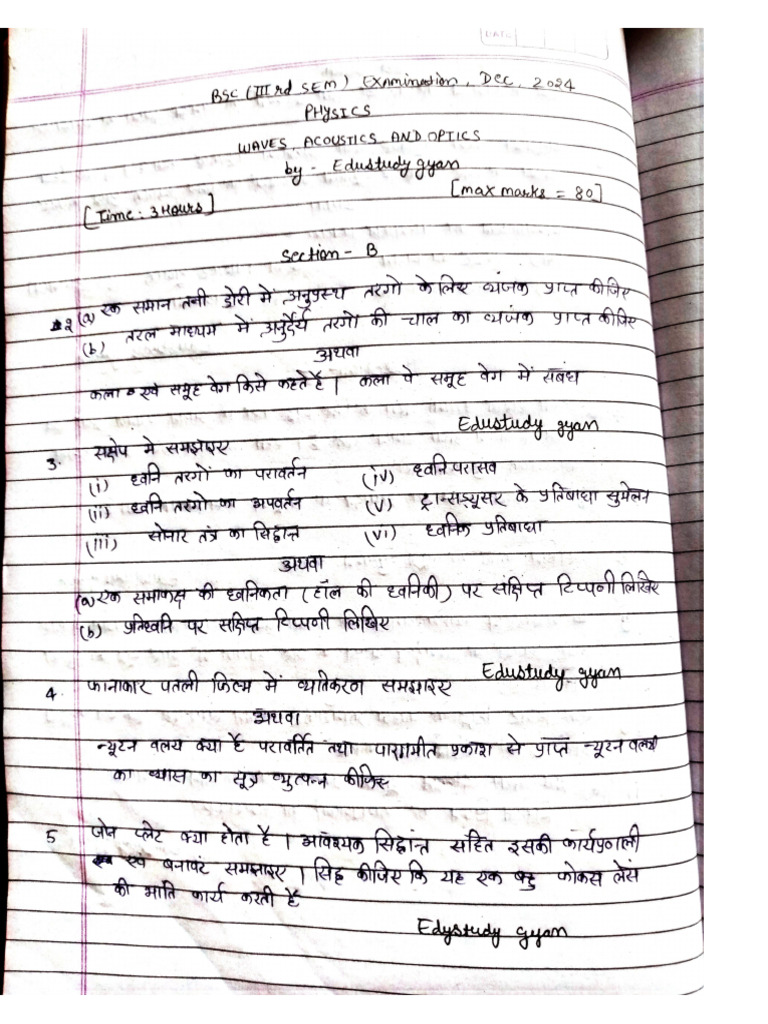 DATE
BSC (IIIrd SEM) Examination, Dec, 2024
PHYSICS
WAVES, ACOUSTICS AND OPTICS
by - Edustudy gyan
[max marks = 80]
[Time: 3 Hours]
Section - B
2 (a) एक समान तनी डोरी में अनुप्रस्थ तरगो के लिए व्यंजक प्राप्त कीजिए
(b) तरल माध्यम में अनुदैर्य तरगो की चाल का व्यंजक प्राप्त कीजिए
अथवा
कला एवं समूह वेग किसे कहते है । कला व समूह वेग में संबंध
Edustudy gyan
3. सक्षेप मे समझाइए
(i) ध्वनि तरगों का परावर्तन (iv) ध्वनि परासव
(ii) ध्वनि तरगो का अपवर्तन (v) ट्रान्सड्यूसर के प्रतिबाधा सुमेलन
(iii) सोनार तंत्र का सिद्वान्त (vi) ध्वनिक प्रतिबाधा
अथवा
(a) एक समाकक्ष की ध्वनिकता (हॉल की ध्वनिकी) पर संक्षिप्त टिप्पणी लिखिए
(b) प्रतिध्वनि पर संक्षिप्त टिप्पणी लिखिए
Edustudy gyan
4. फानाकार पतली फिल्म में व्यतिकरण समझाइए
अथवा
न्यूटन वलय क्या है परावर्तित तथा पारगमीत प्रकाश से प्राप्त न्यूटन वलयो
का व्यास का सूत्र व्युत्पन्न कीजिए
5 जोन प्लेट क्या होता है । आवश्यक सिद्वान्त सहित इसकी कार्यप्रणाली
एवं बनावट समझाइए । सिद्ध कीजिए कि यह एक बहु फोकस लेंस
की भाति कार्य करती है
Edystudy gyan